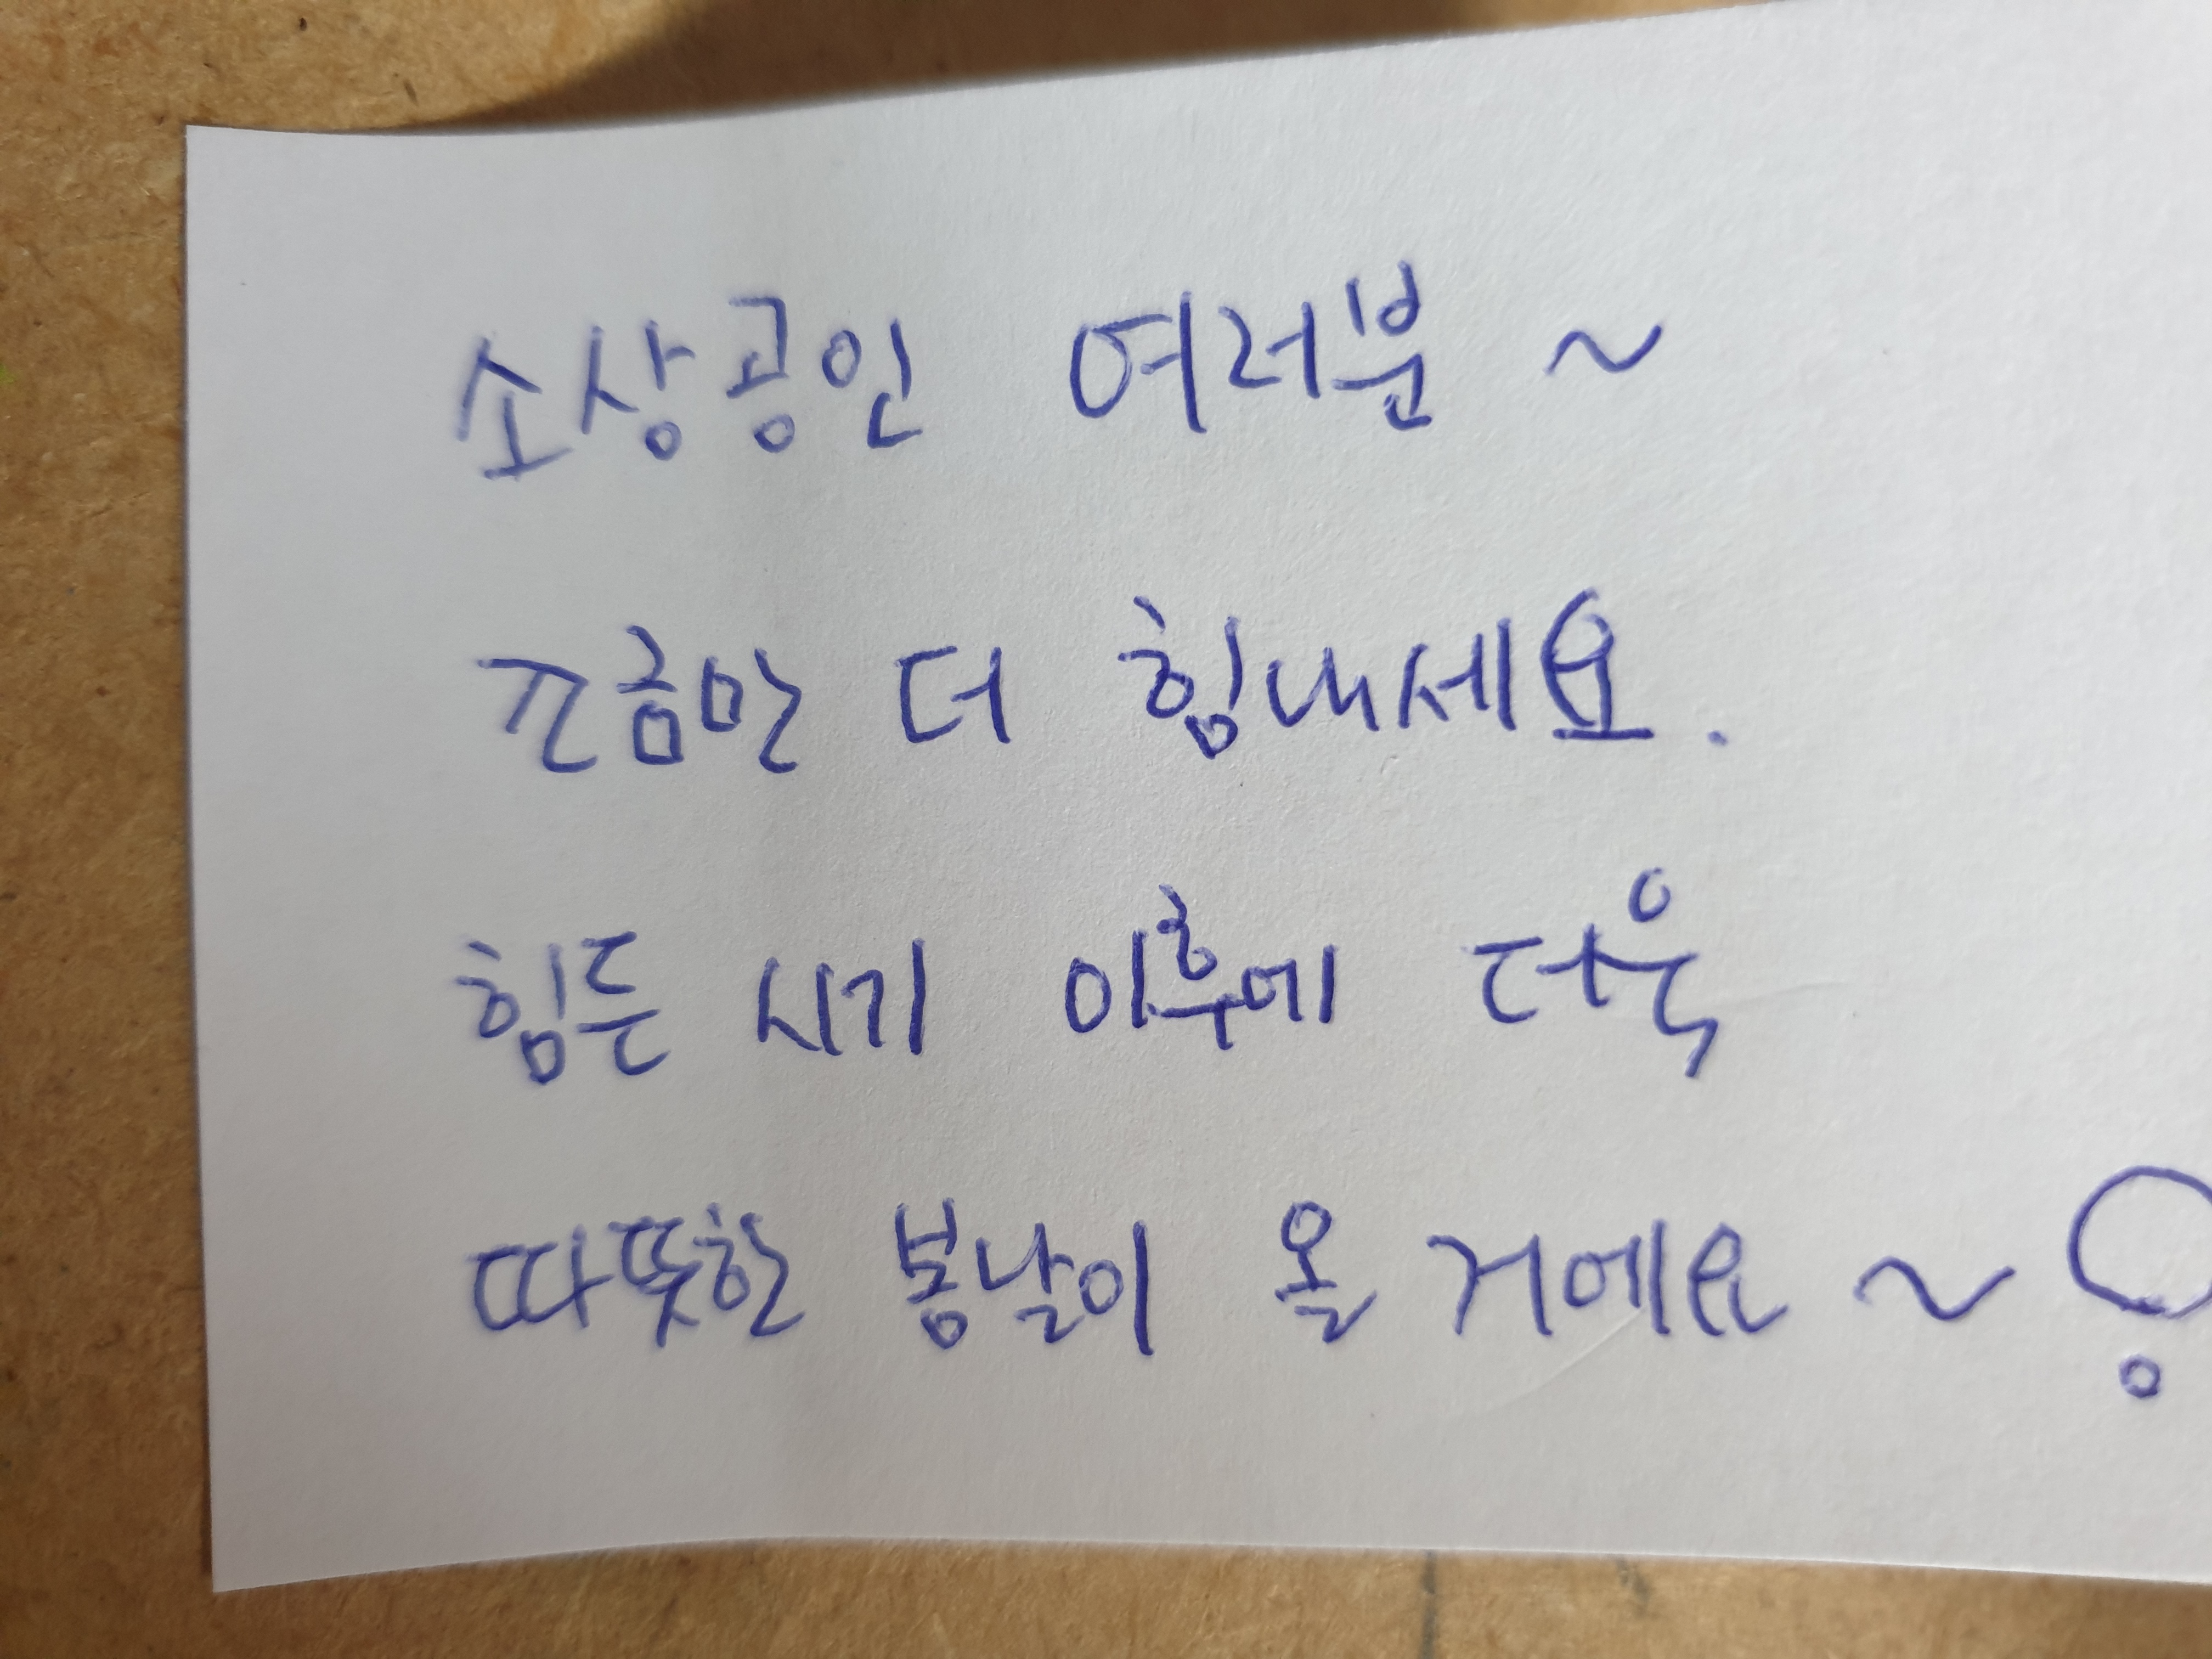 소상공인 여러분 ~
조금만 더 힘내세요.
힘든 시기 이후에 더욱
따뜻한 봄날이 올 거에요 ~!